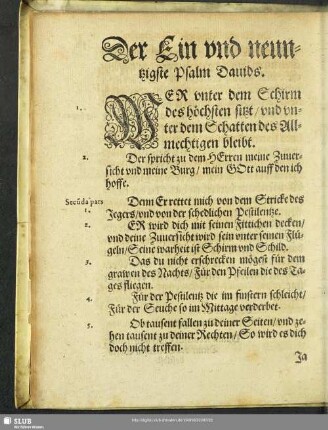 Der Ein vnd neun-
tzigste Psalm Dauids.
1. WER vnter dem Schirm
des höchsten sitzt / vnd vn-
ter dem Schatten des All-
mechtigen bleibt.
2. Der spricht zu dem HErren meine Zuuer-
sicht vnd meine Burg / mein GOtt auff den ich
hoffe.
Secūda pars
1. Denn Er rettet mich von dem Stricke des
Jegers / vnd von der schedlichen Pestilentze.
2. ER wird dich mit seinen Fittichen decken /
vnd deine Zuuersicht wird sein vnter seinen Flü-
geln / Seine warheit ist Schirm vnd Schild.
3. Das du nicht erschrecken mögest für dem
grawen des Nachts / Für den Pfeilen die des Ta-
ges fliegen.
4. Für der Pestilentz die im finstern schleicht /
Für der Seuche so im Mittage verderbet.
5. Ob tausent fallen zu deiner Seiten / vnd ze-
hen tausent zu deiner Rechten / So wird es dich
doch nicht treffen.
Ja
SLUB